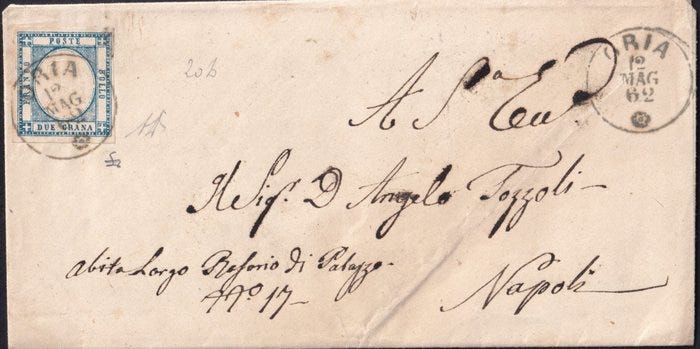 POSTE
FRANCO
BOLLO
DUE GRANA
ORIA
12
MAG
ORIA
12
MAG
62
20 b
A S. Ecc.ª
Il Sig.r D Angelo Tozzoli
abita Largo di Palazzo
N.o 17
Napoli